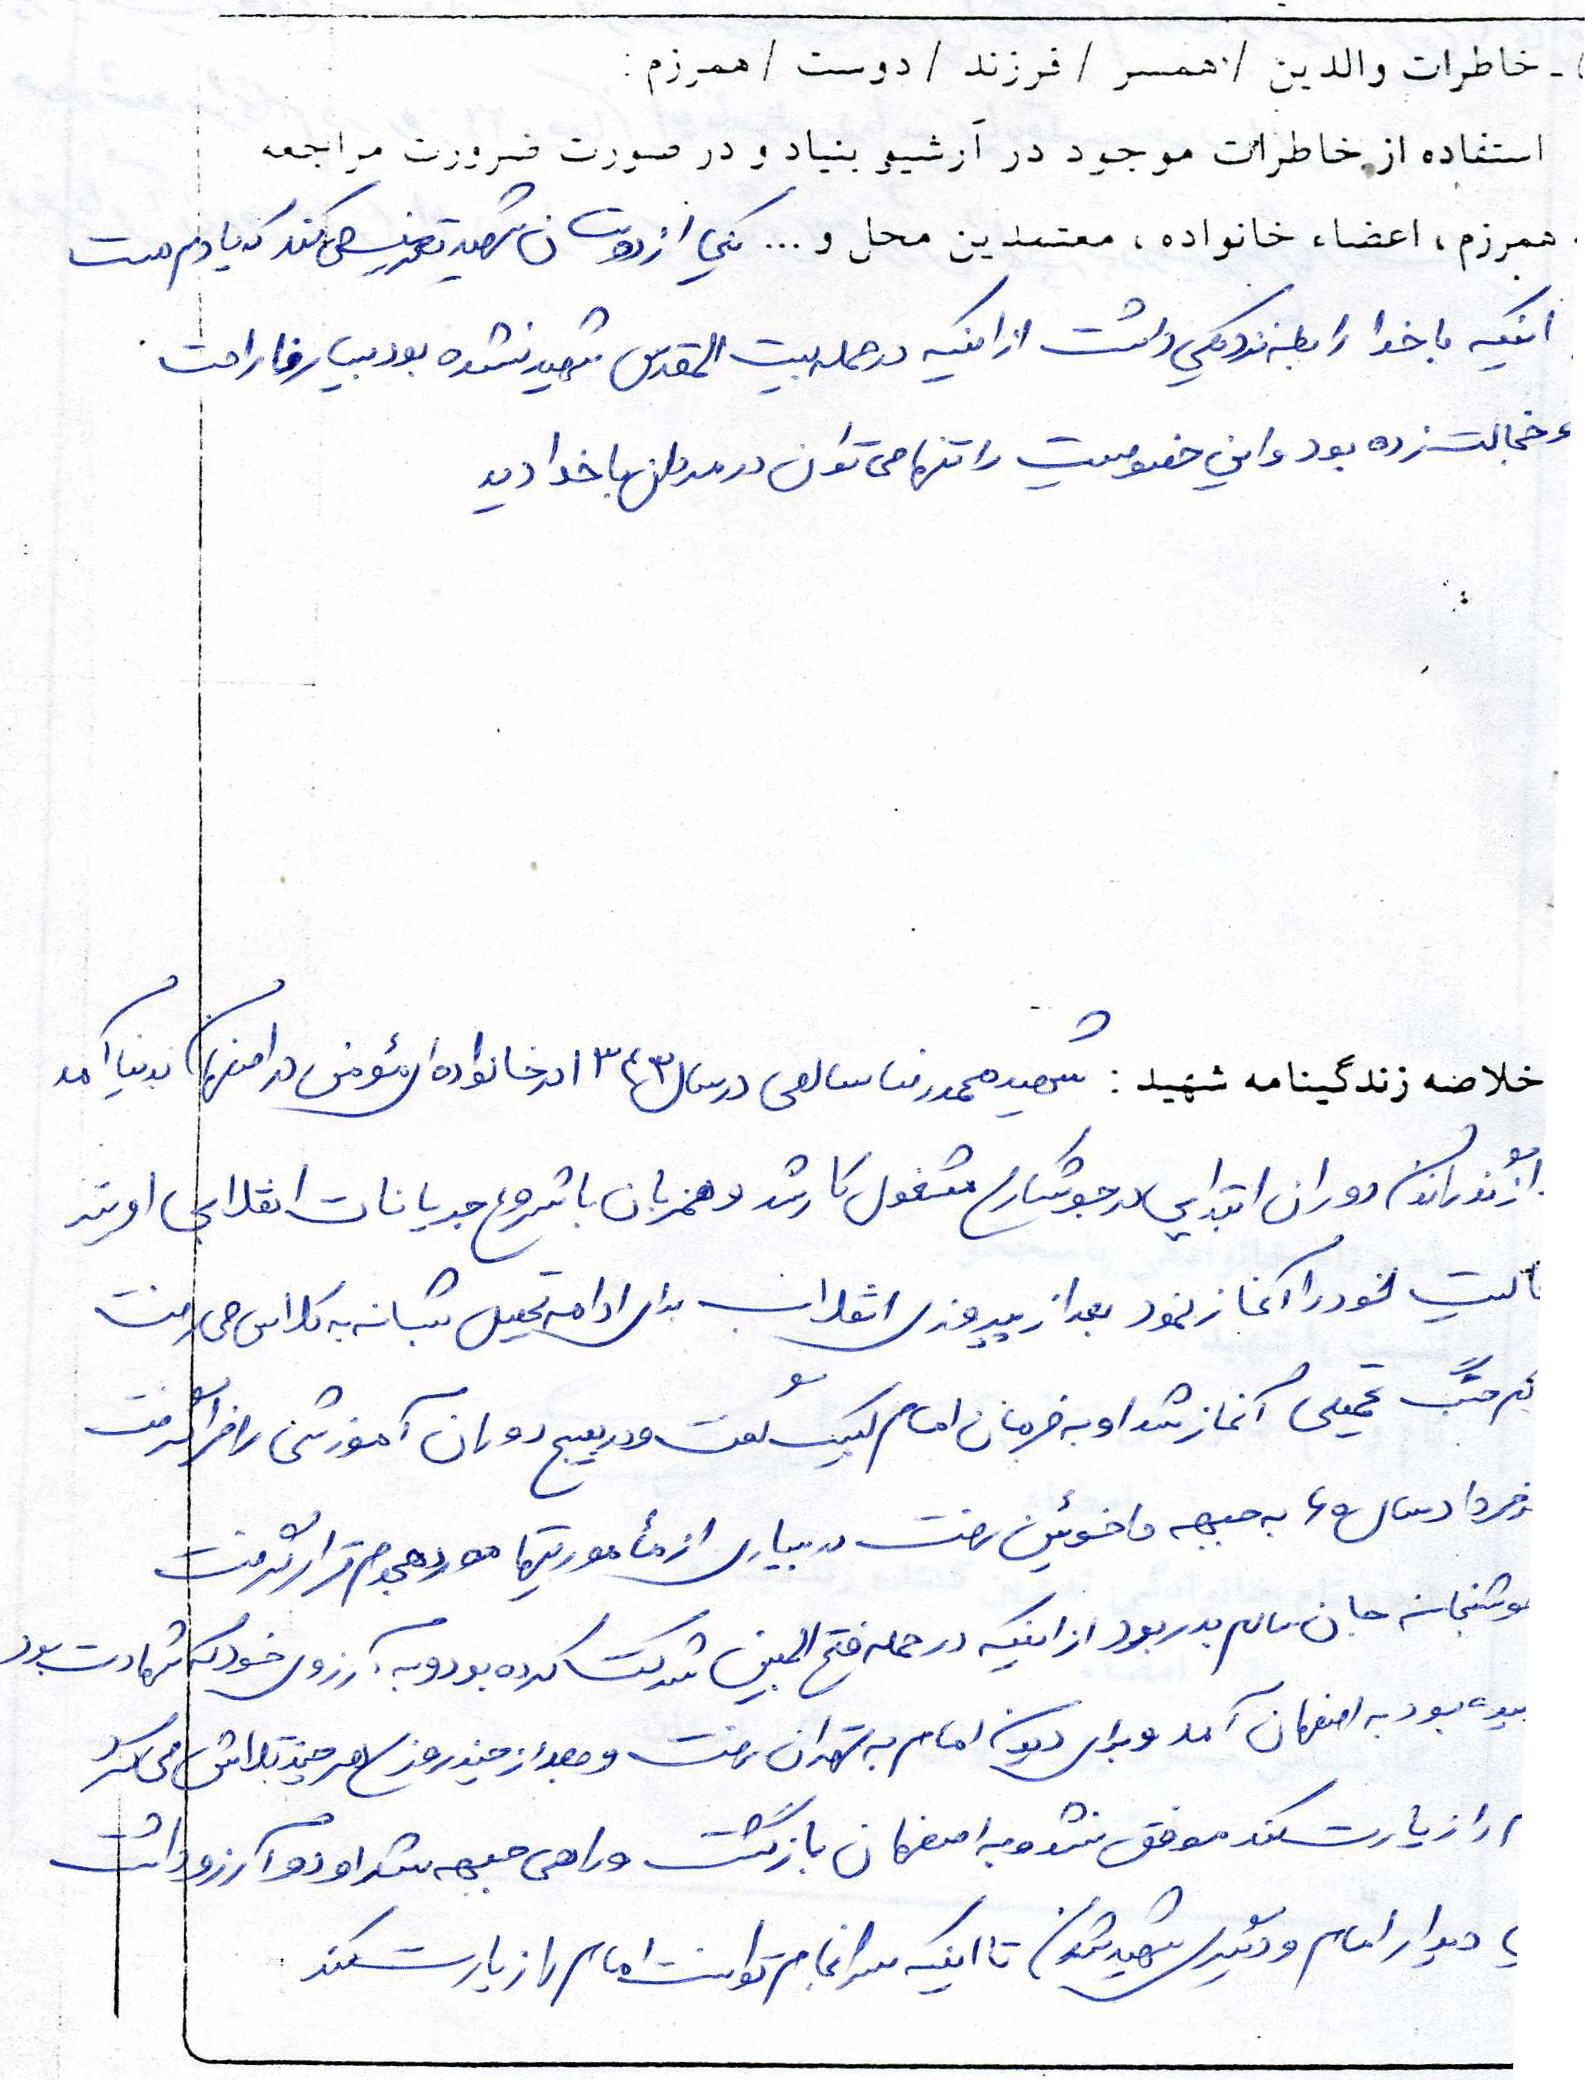 - خاطرات والدین / همسر / فرزند / دوست / همرزم :
استفاده از خاطرات موجود در آرشیو بنیاد و در صورت ضرورت مراجعه
همرزم، اعضاء خانواده، معتمدین محل و ... یکی از دوستان شهید تعریف می کند که یادم هست
اینکه با خدا رابطه نزدیکی داشت از اینکه در حمله بیت المقدس شهید نشده بود بسیار ناراحت
خجالت زده بود و این خصوصیت را تنها می توان در مردان با خدا دید
خلاصه زندگینامه شهید : شهید محمدرضا صالحی در سال ۱۳۴۳ در خانواده ای مؤمن در اصفهان بدنیا آمد
از گذراندن دوران ابتدایی در جوشکاری مشغول کار شد و همزمان با شروع جریانات انقلابی او نیز
خود را آغاز نمود بعد از پیروزی انقلاب برای ادامه تحصیل شبانه به کلاس می رفت
جنگ تحمیلی آغاز شد او به فرمان امام لبیک گفت و در بسیج دوران آموزشی را فرا گرفت
خرداد سال ۶۰ به جبهه دارخوئین رفت در بسیاری از مأموریتها مورد هجوم قرار گرفت
جان سالم بدر بود از اینکه در حمله فتح المبین شرکت کرده بود و به آرزوی خود که شهادت بود
بود به اصفهان آمد و برای دیدن امام به تهران رفت و بعد از چند روزی هر چند تلاش می کرد
را زیارت کند موفق نشد و به اصفهان بازگشت و راهی جبهه شد او دو آرزو داشت
دیدار امام و دیگری شهید شدن تا اینکه سرانجام توانست امام را زیارت کند